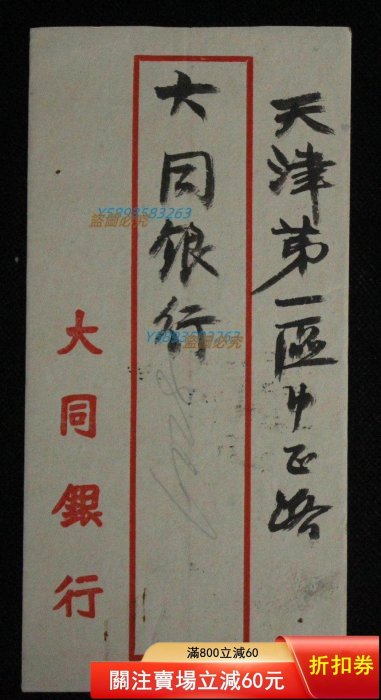 天津第一區中正路
大同銀行
大同銀行
Y5893583263
盜圖必究
Y5893583263
盜圖必究
滿800立減60
關注賣場立減60元
折扣券